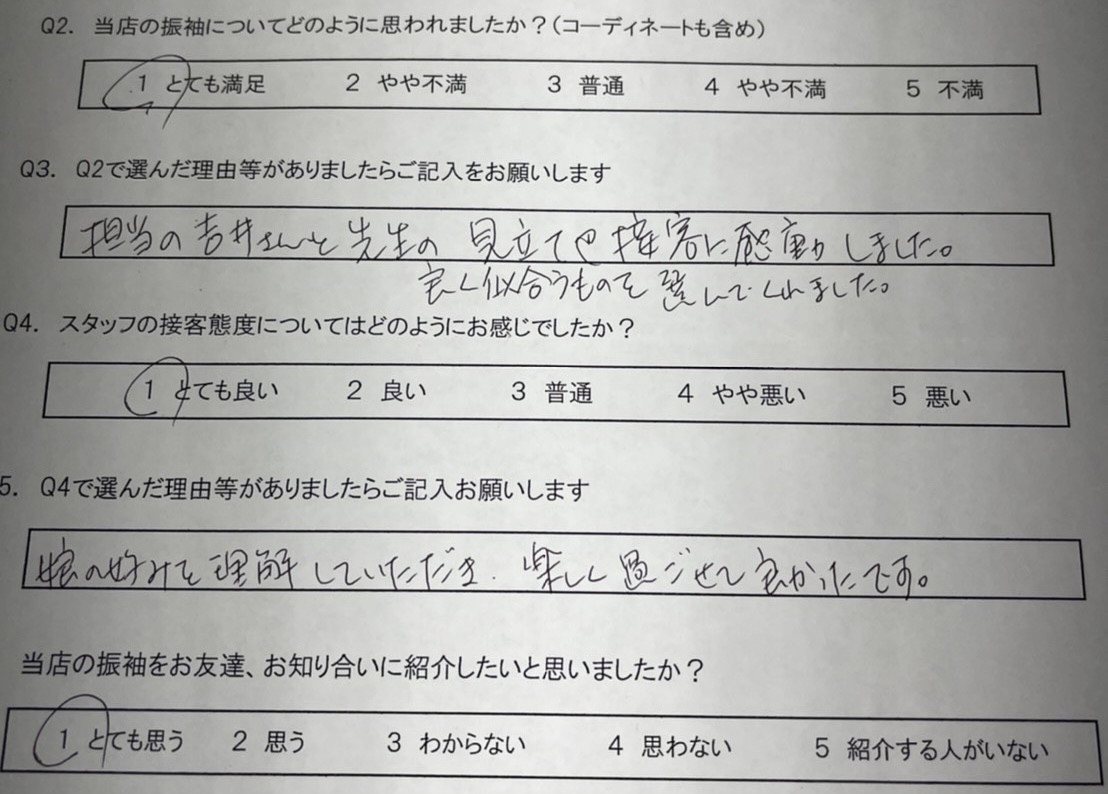 Q2. 当店の振袖についてどのように思われましたか？(コーディネートも含め)
1 とても満足 2 やや不満 3 普通 4 やや不満 5 不満
Q3. Q2で選んだ理由等がありましたらご記入をお願いします
担当の吉井さんと先生の見立てや接客に感動しました。
良く似合うものを選んでくれました。
Q4. スタッフの接客態度についてはどのようにお感じでしたか？
1 とても良い 2 良い 3 普通 4 やや悪い 5 悪い
5. Q4で選んだ理由等がありましたらご記入お願いします
娘の好みを理解していただき、楽しく過ごせて良かったです。
当店の振袖をお友達、お知り合いに紹介したいと思いましたか？
1 とても思う 2 思う 3 わからない 4 思わない 5 紹介する人がいない